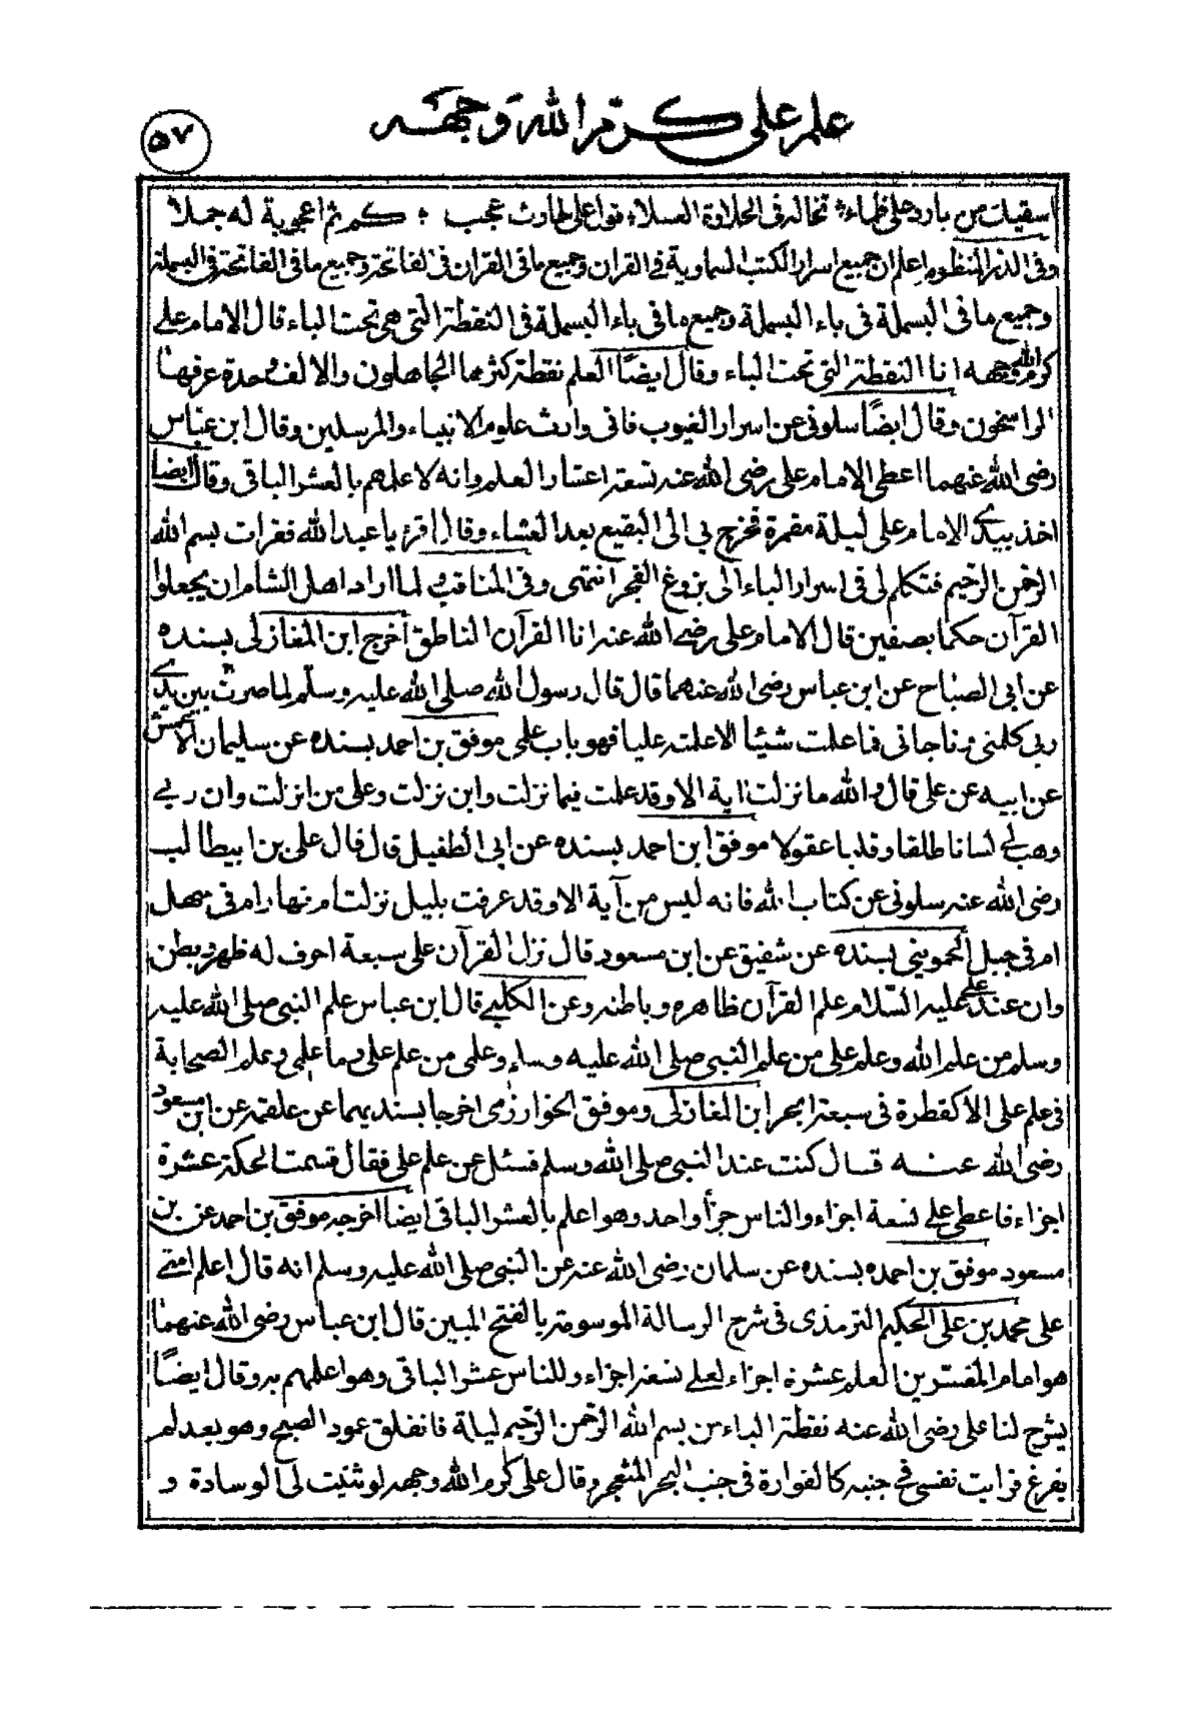 علم على كرم الله وجهه
٥٧
اسقيك من بارد على ظماء ؛ تخاله فى الحلاوة العسلا ؛ قول على لحارث عجب ؛ كم ثم اعجوبة له جملا
وفى الدر المنظوم اعلم ان جميع اسرار الكتب السماوية فى القران وجميع ما فى القران فى الفاتحة وجميع ما فى الفاتحة فى البسملة
وجميع ما فى البسملة فى باء البسملة وجميع ما فى باء البسملة فى النقطة التى هى تحت الباء قال الامام على
كرم الله وجهه انا النقطة التى تحت الباء وقال ايضًا العلم نقطة كثرها الجاهلون والالف وحدة عرفها
الراسخون وقال ايضًا سلونى عن اسرار الغيوب فانى وارث علوم الانبياء والمرسلين وقال ابن عباس
رضى الله عنهما اعطى الامام على رضى الله عنه تسعة اعشار العلم وانه لاعلمهم بالعشر الباقى وقال ايضا
اخذ بيدى الامام على ليلة مقمرة فخرج بى الى البقيع بعد العشاء وقال اقرء يا عبد الله فقرات بسم الله
الرحمن الرحيم فتكلم لى فى اسرار الباء الى بزوغ الفجر انتهى وفى المناقب لما اراد اهل الشام ان يجعلوا
القرآن حكما بصفين قال الامام على رضى الله عنه انا القرآن الناطق اخرج ابن المغازلى بسنده
عن ابى الصباح عن ابن عباس رضى الله عنهما قال قال رسول الله صلى الله عليه وسلم لما صرت بين يدى
ربى كلمنى وناجانى فما علمت شيئا الا علمته عليا فهو باب علمى موفق بن احمد بسنده عن سليمان الاعمش
عن ابيه عن على قال والله ما نزلت اية الا وقد علمت فيما نزلت واين نزلت وعلى من انزلت وان ربى
وهب لى لسانا طلقا وقلبا عقولا موفق ابن احمد بسنده عن ابى الطفيل قال قال على بن ابيطالب
رضى الله عنه سلونى عن كتاب الله فانه ليس من آية الا وقد عرفت بليل نزلت ام نهار ام فى سهل
ام فى جبل الحموينى بسنده عن شقيق عن ابن مسعود قال نزل القرآن على سبعة احرف له ظهر وبطن
وان عند على عليه السلام علم القرآن ظاهره وباطنه وعن الكلبى قال ابن عباس علم النبى صلى الله عليه
وسلم من علم الله وعلم على من علم النبى صلى الله عليه وسلم وعلمى من علم على وما علمى وعلم الصحابة
فى علم على الا كقطرة فى سبعة ابحر ابن المغازلى وموفق الخوارزمى اخرجا بسنديهما عن علقمة عن ابن مسعود
رضى الله عنه قال كنت عند النبى صلى الله وسلم فسئل عن علم على فقال قسمت الحكمة عشرة
اجزاء فاعطى على تسعة اجزاء والناس جزأ واحد وهو اعلم بالعشر الباقى ايضا اخرجه موفق بن احمد عن بن
مسعود موفق بن احمده بسنده عن سلمان رضى الله عنه عن النبى صلى الله عليه وسلم انه قال اعلم امتى
على محمد بن على الحكيم الترمذى فى شرح الرسالة الموسومة بالفتح المبين قال ابن عباس رضى الله عنهما
هو امام المفسرين العلم عشرة اجزاء لعلى تسعة اجزاء وللناس عشر الباقى وهو اعلمهم به وقال ايضًا
يشرح لنا على رضى الله عنه نقطة الباء من بسم الله الرحمن الرحيم ليلة فانفلق عمود الصبح وهو بعد لم
يفرغ فرايت نفسى فى جنبه كالفوارة فى جنب البحر المثعجر وقال على كرم الله وجهه لو ثنيت لى الوسادة و